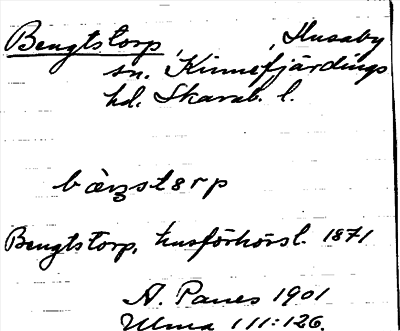 Bengtstorp, , Husaby
sn. Kinnefjärdings
hd. Skarab. l.
Bengtstorp, husförhörsl. 1871
A. Palles 1901
Ulma 111:126.